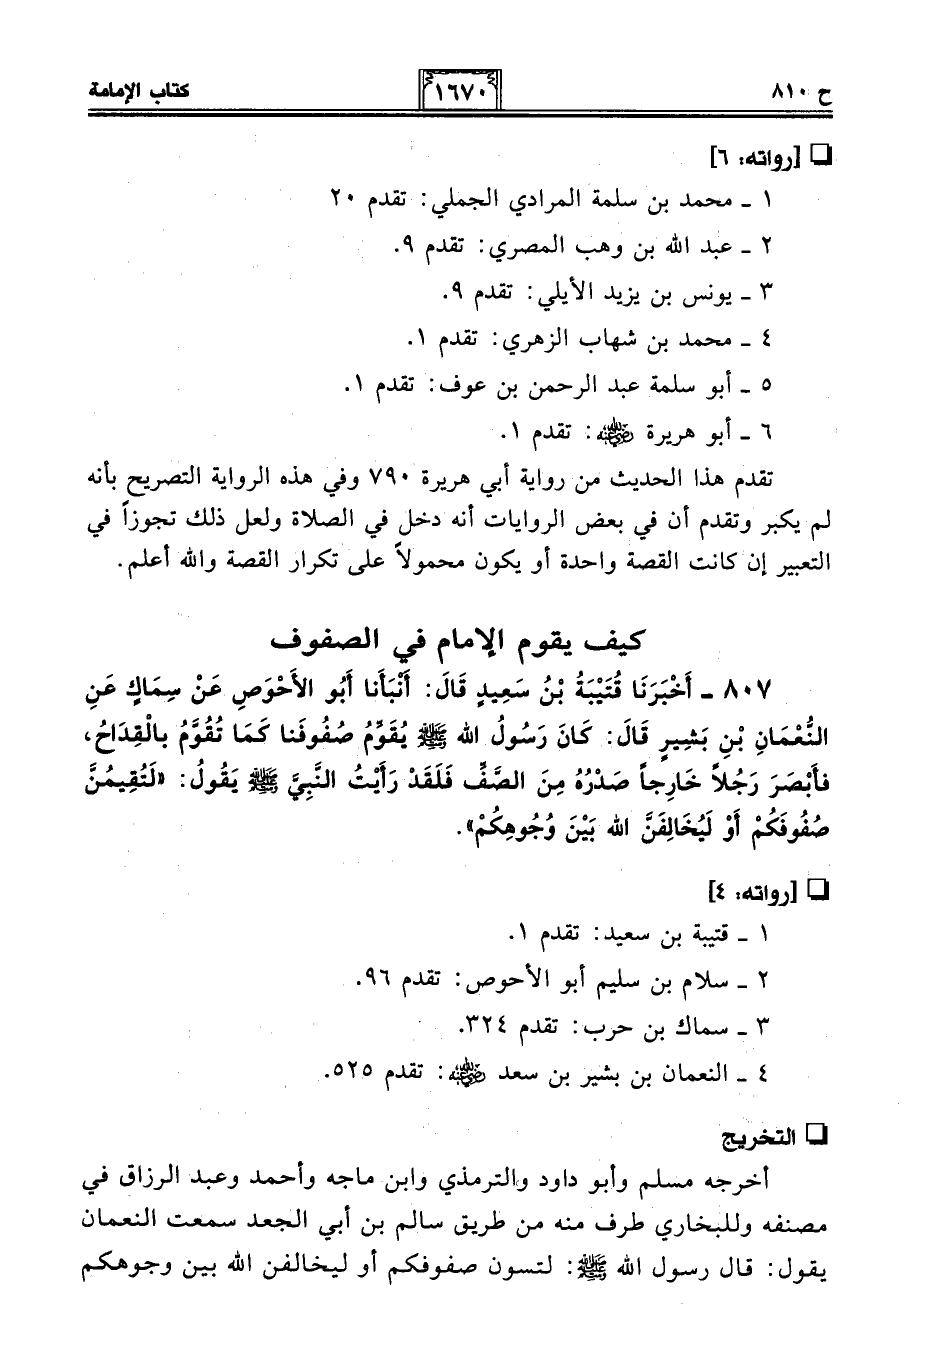 ح ٨١٠ ١٦٧٠ كتاب الإمامة
❑ [رواته: ٦]
١ ـ محمد بن سلمة المرادي الجملي: تقدم ٢٠
٢ ـ عبد الله بن وهب المصري: تقدم ٩.
٣ ـ يونس بن يزيد الأيلي: تقدم ٩.
٤ ـ محمد بن شهاب الزهري: تقدم ١.
٥ ـ أبو سلمة عبد الرحمن بن عوف: تقدم ١.
٦ ـ أبو هريرة رضي الله عنه: تقدم ١.
تقدم هذا الحديث من رواية أبي هريرة ٧٩٠ وفي هذه الرواية التصريح بأنه
لم يكبر وتقدم أن في بعض الروايات أنه دخل في الصلاة ولعل ذلك تجوزاً في
التعبير إن كانت القصة واحدة أو يكون محمولاً على تكرار القصة والله أعلم.
كيف يقوم الإمام في الصفوف
٨٠٧ ـ أَخبَرَنَا قُتَيْبَةُ بْنُ سَعِيدٍ قَالَ: أَنْبَأَنا أَبُو الأَحْوَصِ عَنْ سِمَاكٍ عَنِ
النُّعْمَانِ بْنِ بَشيرٍ قَالَ: كَانَ رَسُولُ الله ﷺ يُقَوِّمُ صُفُوفَنا كَمَا تُقَوَّمُ بالْقِدَاحُ،
فأَبْصَرَ رَجُلاً خَارِجاً صَدْرُهُ مِنَ الصَّفِّ فَلَقَدْ رَأَيْتُ النَّبِيَّ ﷺ يَقُولُ: «لَتُقِيمُنَّ
صُفُوفَكُمْ أَوْ لَيُخَالِفَنَّ الله بَيْنَ وُجُوهِكُمْ».
❑ [رواته: ٤]
١ ـ قتيبة بن سعيد: تقدم ١.
٢ ـ سلام بن سليم أبو الأحوص: تقدم ٩٦.
٣ ـ سماك بن حرب: تقدم ٣٢٤.
٤ ـ النعمان بن بشير بن سعد رضي الله عنه: تقدم ٥٢٥.
❑ التخريج
أخرجه مسلم وأبو داود والترمذي وابن ماجه وأحمد وعبد الرزاق في
مصنفه وللبخاري طرف منه من طريق سالم بن أبي الجعد سمعت النعمان
يقول: قال رسول الله ﷺ: لتسون صفوفكم أو ليخالفن الله بين وجوهكم